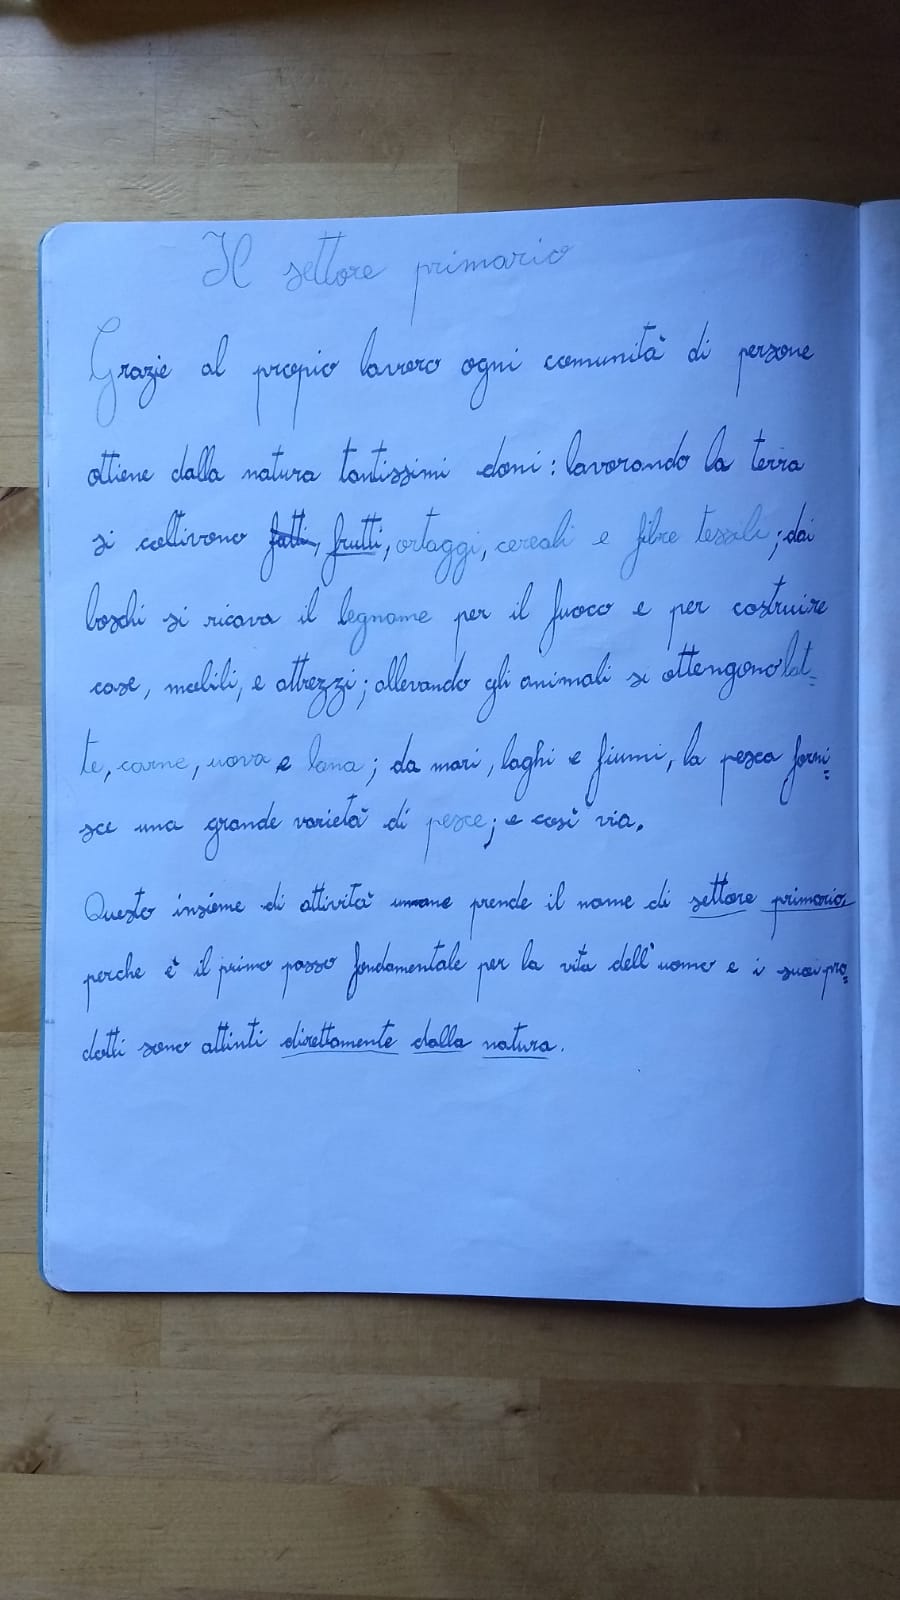 Il settore primario
Grazie al propio lavoro ogni comunità di persone
ottiene dalla natura tantissimi doni: lavorando la terra
si coltivono fatti, frutti, ortaggi, cereali e fibre tessili; dai
boschi si ricava il legname per il fuoco e per costruire
case, mobili, e attrezzi; allevando gli animali si ottengono lat=
te, carne, uova e lana; da mari, laghi e fiumi, la pesca forni=
sce una grande varietà di pesce; e così via.
Questo insieme di attività umane prende il nome di settore primario,
perche è il primo passo fondamentale per la vita dell'uomo e i suoi pro=
dotti sono attinti direttamente dalla natura.